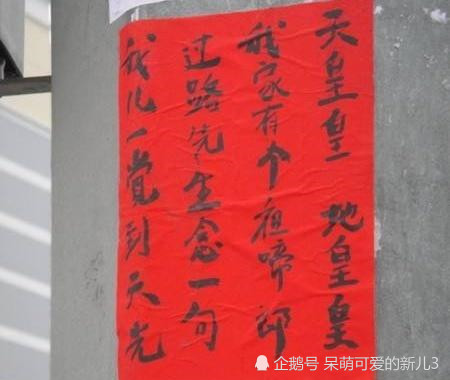 天皇皇 地皇皇
我家有个祖啼郎
过路先生念一句
我儿一覚到天光
企鹅号 呆萌可爱的新儿3